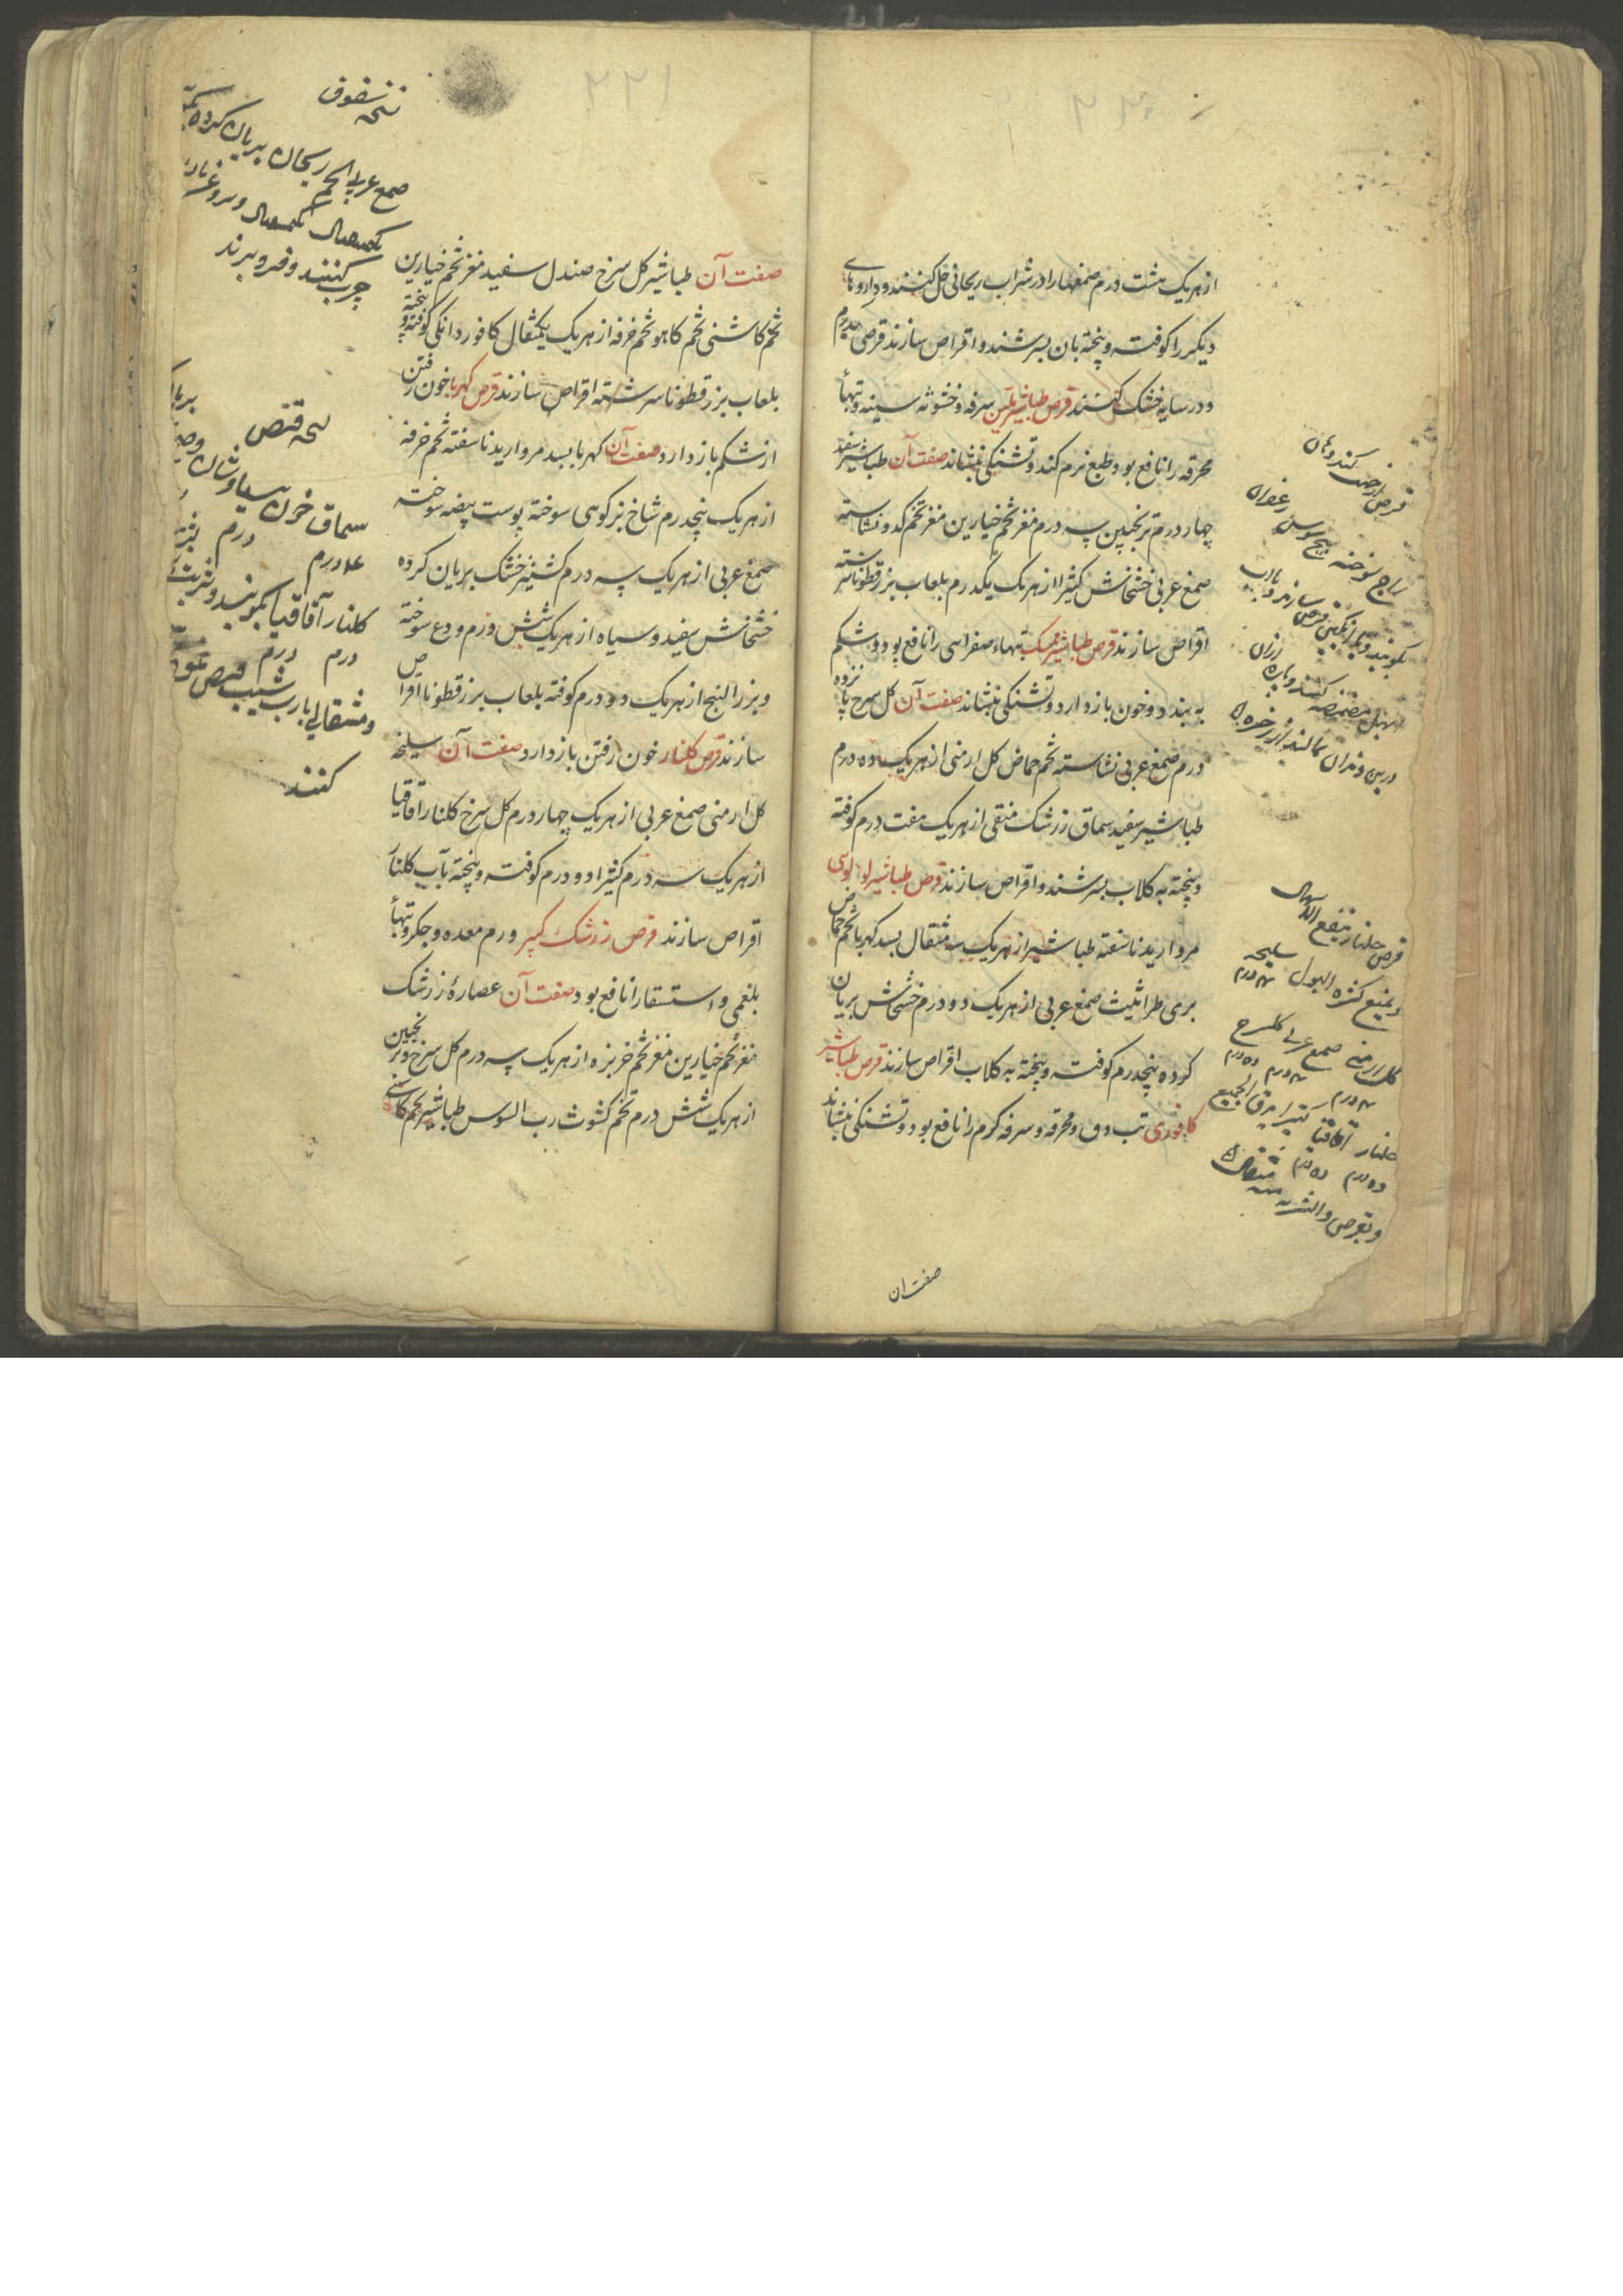 از هر یک هشت درم صمغها را در شراب ریحانی حل کنند و داروهای
دیکر را کوفته و پخته بان بسرشند و اقراص سازند قرصی
و در سایه خشک کنند قرص طباشیر ملین سرفه و خشونه سینه و تبهأ
محرقه را نافع بود و طبع نرم کند و تشنکی بنشاند صفت آن طباشیر سفید
چهار درم ترنجبین سه درم مغز تخم خیارین مغز تخم کدو نشاسته
صمغ عربی خشخاش کثیرا از هر یک یکدرم بلعاب بزرقطونا سرشته
اقراص سازند قرص طباشیر ممسک تبهاء صفراسی را نافع بود و شکم
به بندد و خون بازدارد و تشنکی بنشاند صفت آن کل سرخ پانزده
درم صمغ عربی نشاسته تخم حماض کل ارمنی از هر یک ده درم
طباشیر سفید سماق زرشک منقی از هر یک هفت درم کوفته
و پخته به کلاب بسرشند و اقراص سازند قرص طباشیر لولوسی
مروارید ناسفته طباشیر از هر یک سه مثقال بسد کهربا تخم حماض
بری طراثیث صمغ عربی از هر یک دو درم خشخاش بریان
کرده پنجدرم کوفته و پخته به کلاب اقراص سازند قرص طباشیر
کافوری تب دق و محرقه و سرفه کرم را نافع بود و تشنکی بنشاند
صفت ان
قرص
زعفران
راج سوخته بیخ سوسن
قرص جلنار ینفع
و یمنع کثره البول سلیخه
کل ارمنی صمغ عربی کلسرخ
جلنار آقاقیا کتیرا یدق الجمیع
ده درم ده درم
و یقرص و الشربه مثقال
صفت آن طباشیر کل سرخ صندل سفید مغز تخم خیارین
تخم کاشنی تخم کاهو تخم خرفه از هر یک یکمثقال کافور دانکی کوفته و پخته
بلعاب بزرقطونا سرشته اقراص سازند قرص کهربا خون رفتن
از شکم بازدارد صفت آن کهربا بسد مروارید ناسفته تخم خرفه
از هر یک پنجدرم شاخ بز کوسی سوخته پوست بیضه سوخته
صمغ عربی از هر یک سه درم کشنیز خشک بریان کرده
خشخاش سفید و سیاه از هر یک شش درم ودع سوخته
و بزر البنج از هر یک دو درم کوفته بلعاب بزرقطونا اقراص
سازند قرص کلنار خون رفتن بازدارد صفت آن سلیخه
کل ارمنی صمغ عربی از هر یک چهار درم کل سرخ کلنار اقاقیا
از هر یک سه درم کثیرا دو درم کوفته و پخته بآب کلنار
اقراص سازند قرص زرشک کبیر ورم معده و جکر و تبهأ
بلغمی و استسقا را نافع بود صفت آن عصارهٔ زرشک
مغز تخم خیارین مغز تخم خربزه از هر یک سه درم کل سرخ و ترنجبین
از هر یک شش درم تخم کشوث رب السوس طباشیر تخم کاسنی
نسخه سفوف
صمغ عربی تخم ریحان بریان کرده
یکمثقال یکمثقال و بروغن
چرب کنند و فرو برند
نسخه قرص
سماق خون سیاوشان
درم درم
کلنار آقاقیا بکوبند و شربت
درم درم
و مثقالی با رب سیب قرص
کنند